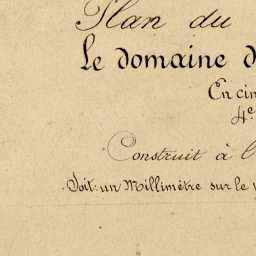 Plan du
Le domaine d
En cin
4e
Construit à l
Soit: un Millimètre sur le